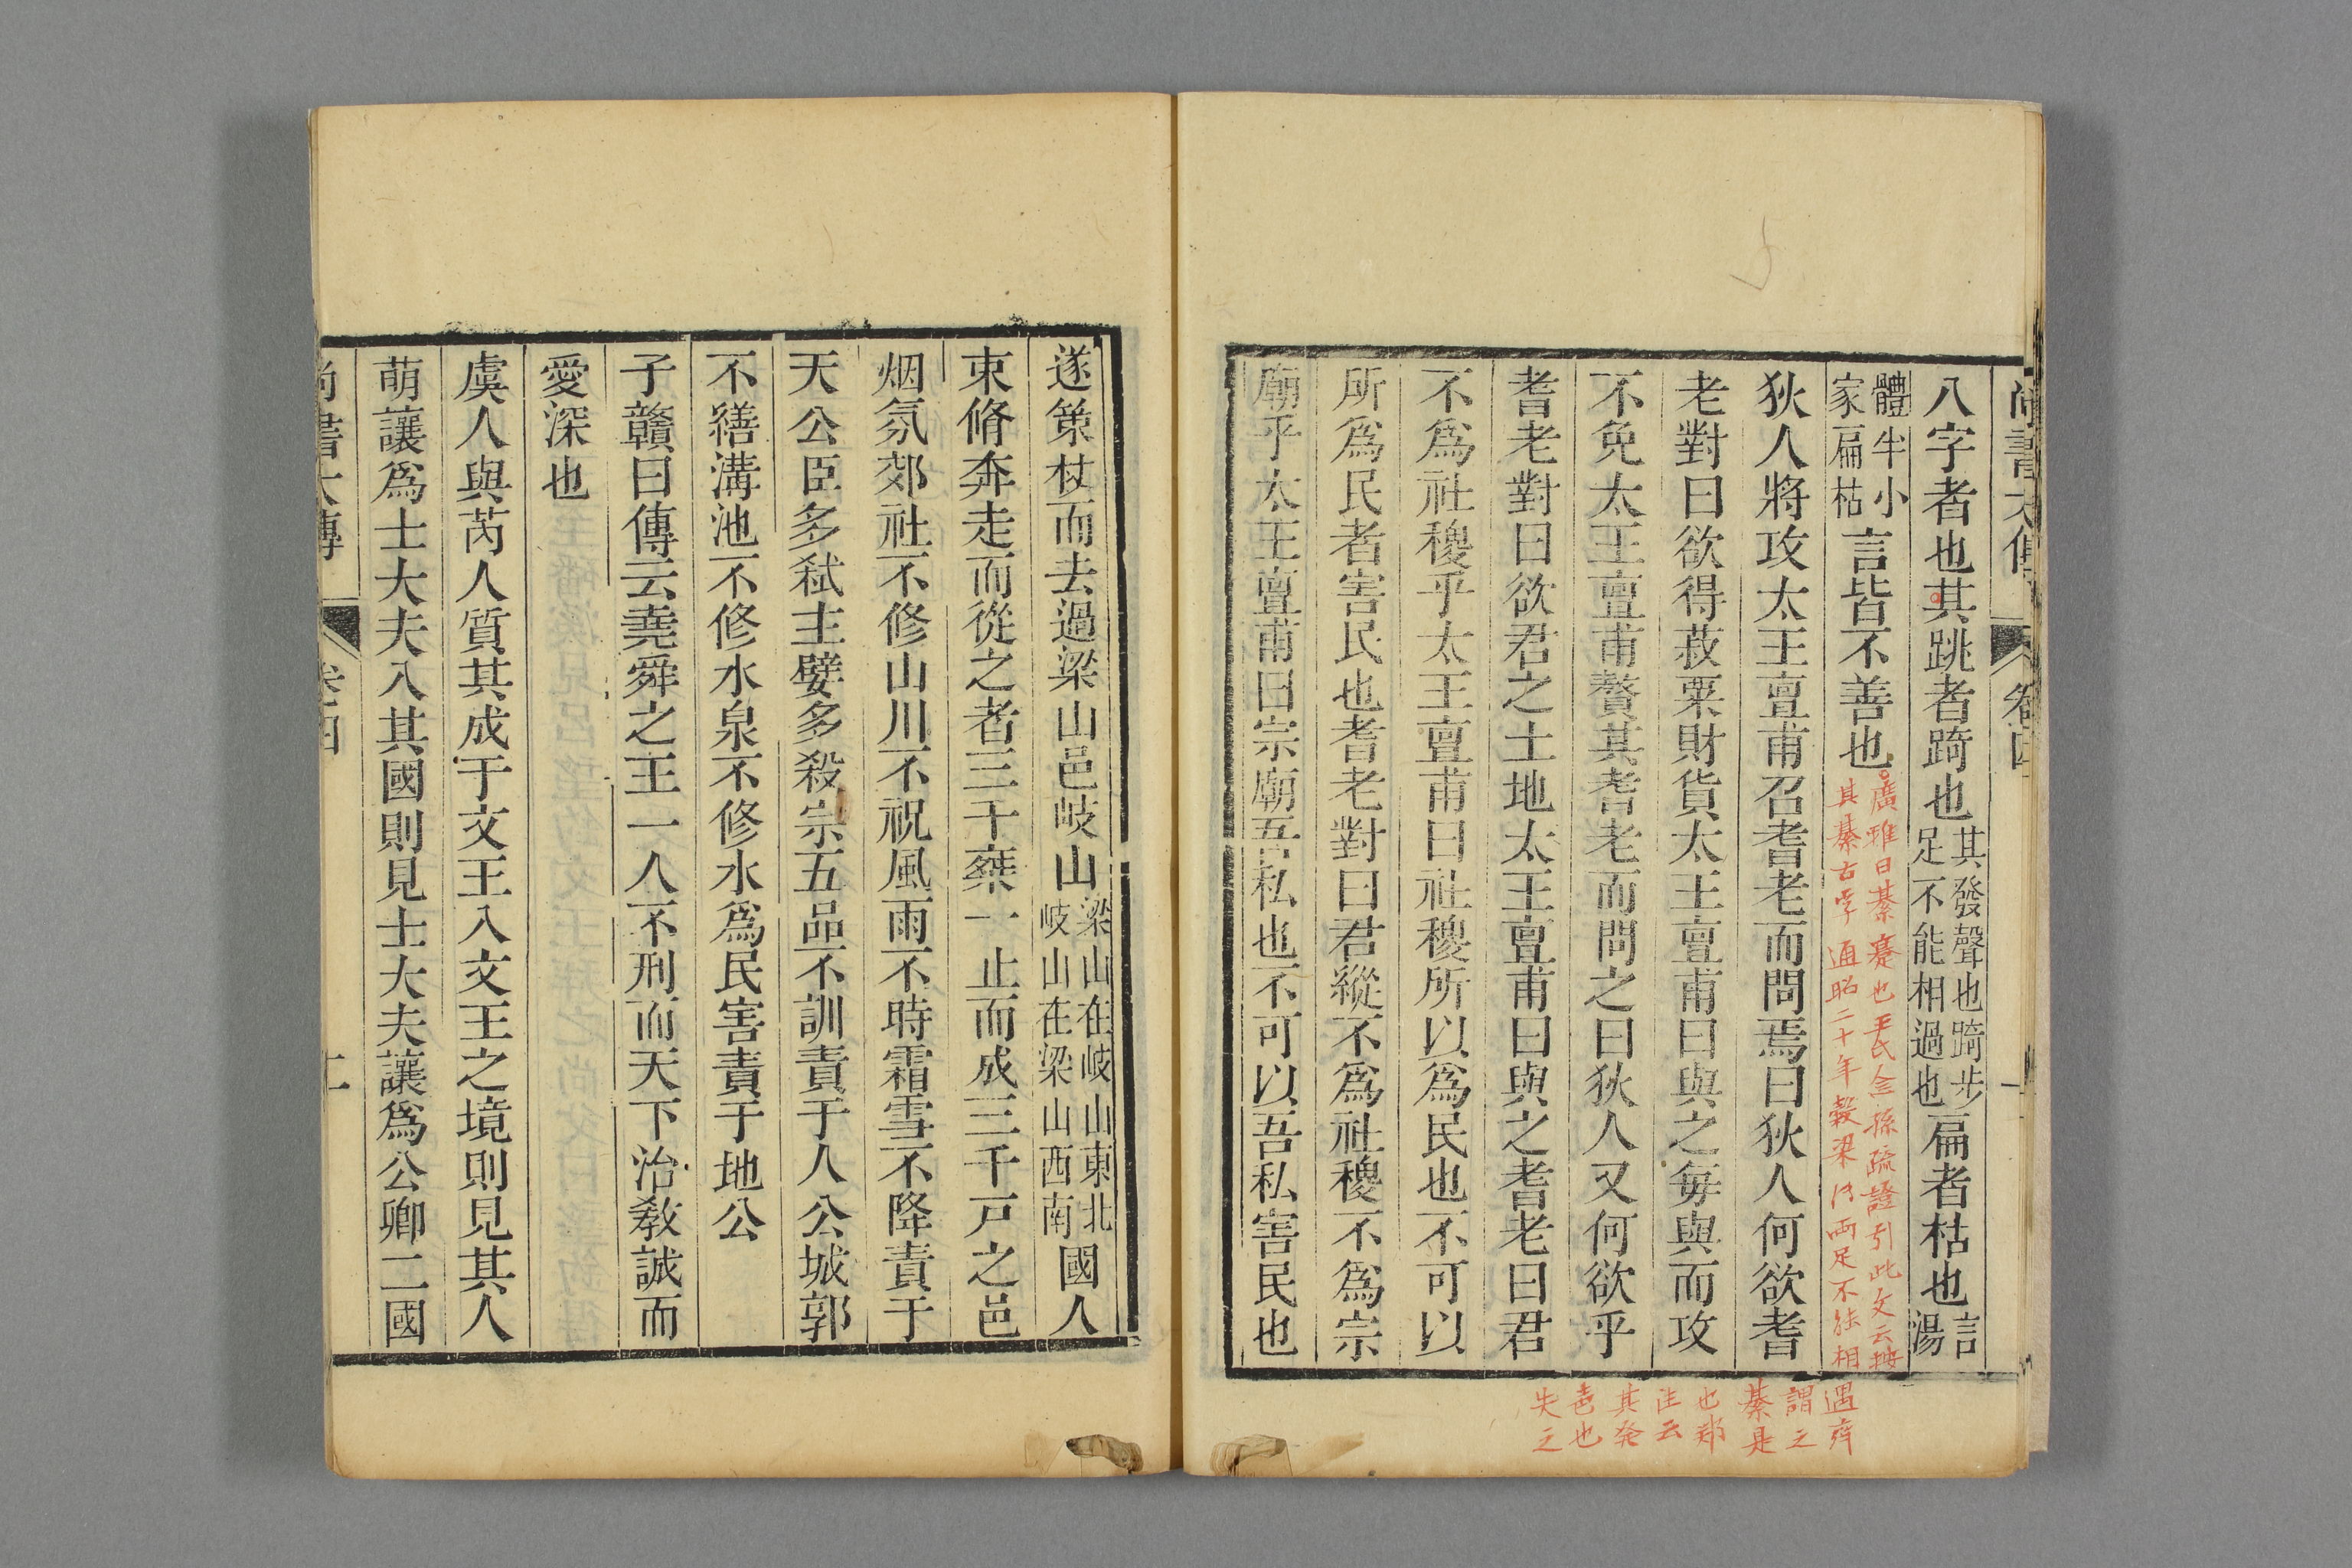 尚書大傳 卷四
八字者也其跳者踦也其發聲也踦步足不能相過也扁者枯也言湯
體半小家扁枯言皆不善也
廣雅曰綦蹇也王氏念孫疏證引此文云按
其綦古字通昭二十年穀梁傳兩足不能相
過齊
謂之
綦是
也鄭
注云
其發
聲也
失之
狄人將攻太王亶甫召耆老而問焉曰狄人何欲耆
老對曰欲得菽粟財貨太王亶甫曰與之每與而攻
不免太王亶甫贅其耆老而問之曰狄人又何欲乎
耆老對曰欲君之土地太王亶甫曰與之耆老曰君
不爲社稷乎太王亶甫曰社稷所以爲民也不可以
所爲民者害民也耆老對曰君縱不爲社稷不爲宗
廟乎太王亶甫曰宗廟吾私也不可以吾私害民也
遂策杖而去過梁山邑岐山梁山在岐山東北岐山在梁山西南國人
束脩奔走而從之者三千乘一止而成三千戸之邑
烟氛郊社不修山川不祝風雨不時霜雪不降責于
天公臣多弑主孼多殺宗五品不訓責于人公城郭
不繕溝池不修水泉不修水爲民害責于地公
子贛曰傳云堯舜之王一人不刑而天下治教誠而
愛深也
虞人與芮人質其成于文王入文王之境則見其人
萌讓爲士大夫入其國則見士大夫讓爲公卿二國
尚書大傳 卷四